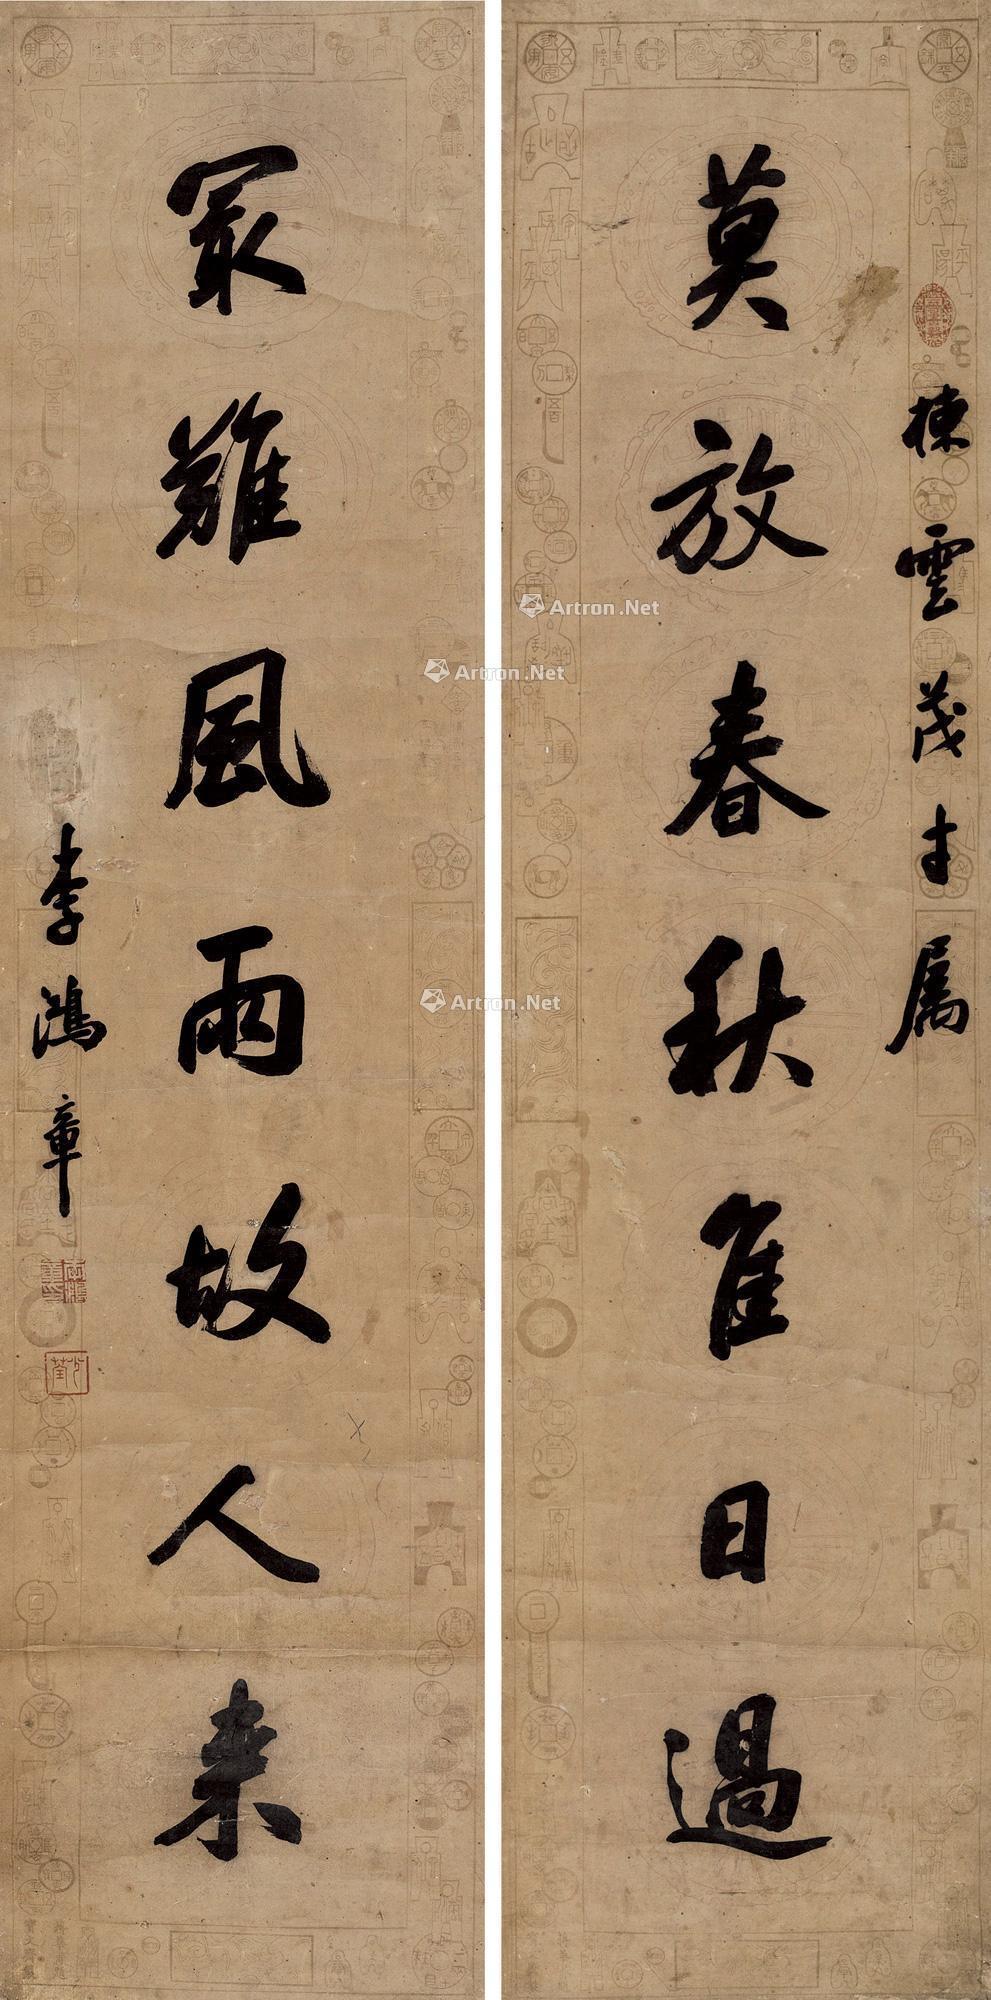 棟雲茂才属
莫放春秋隹日過
冣難風雨故人来
李鴻章
Artron.Net
Artron.Net
Artron.Net